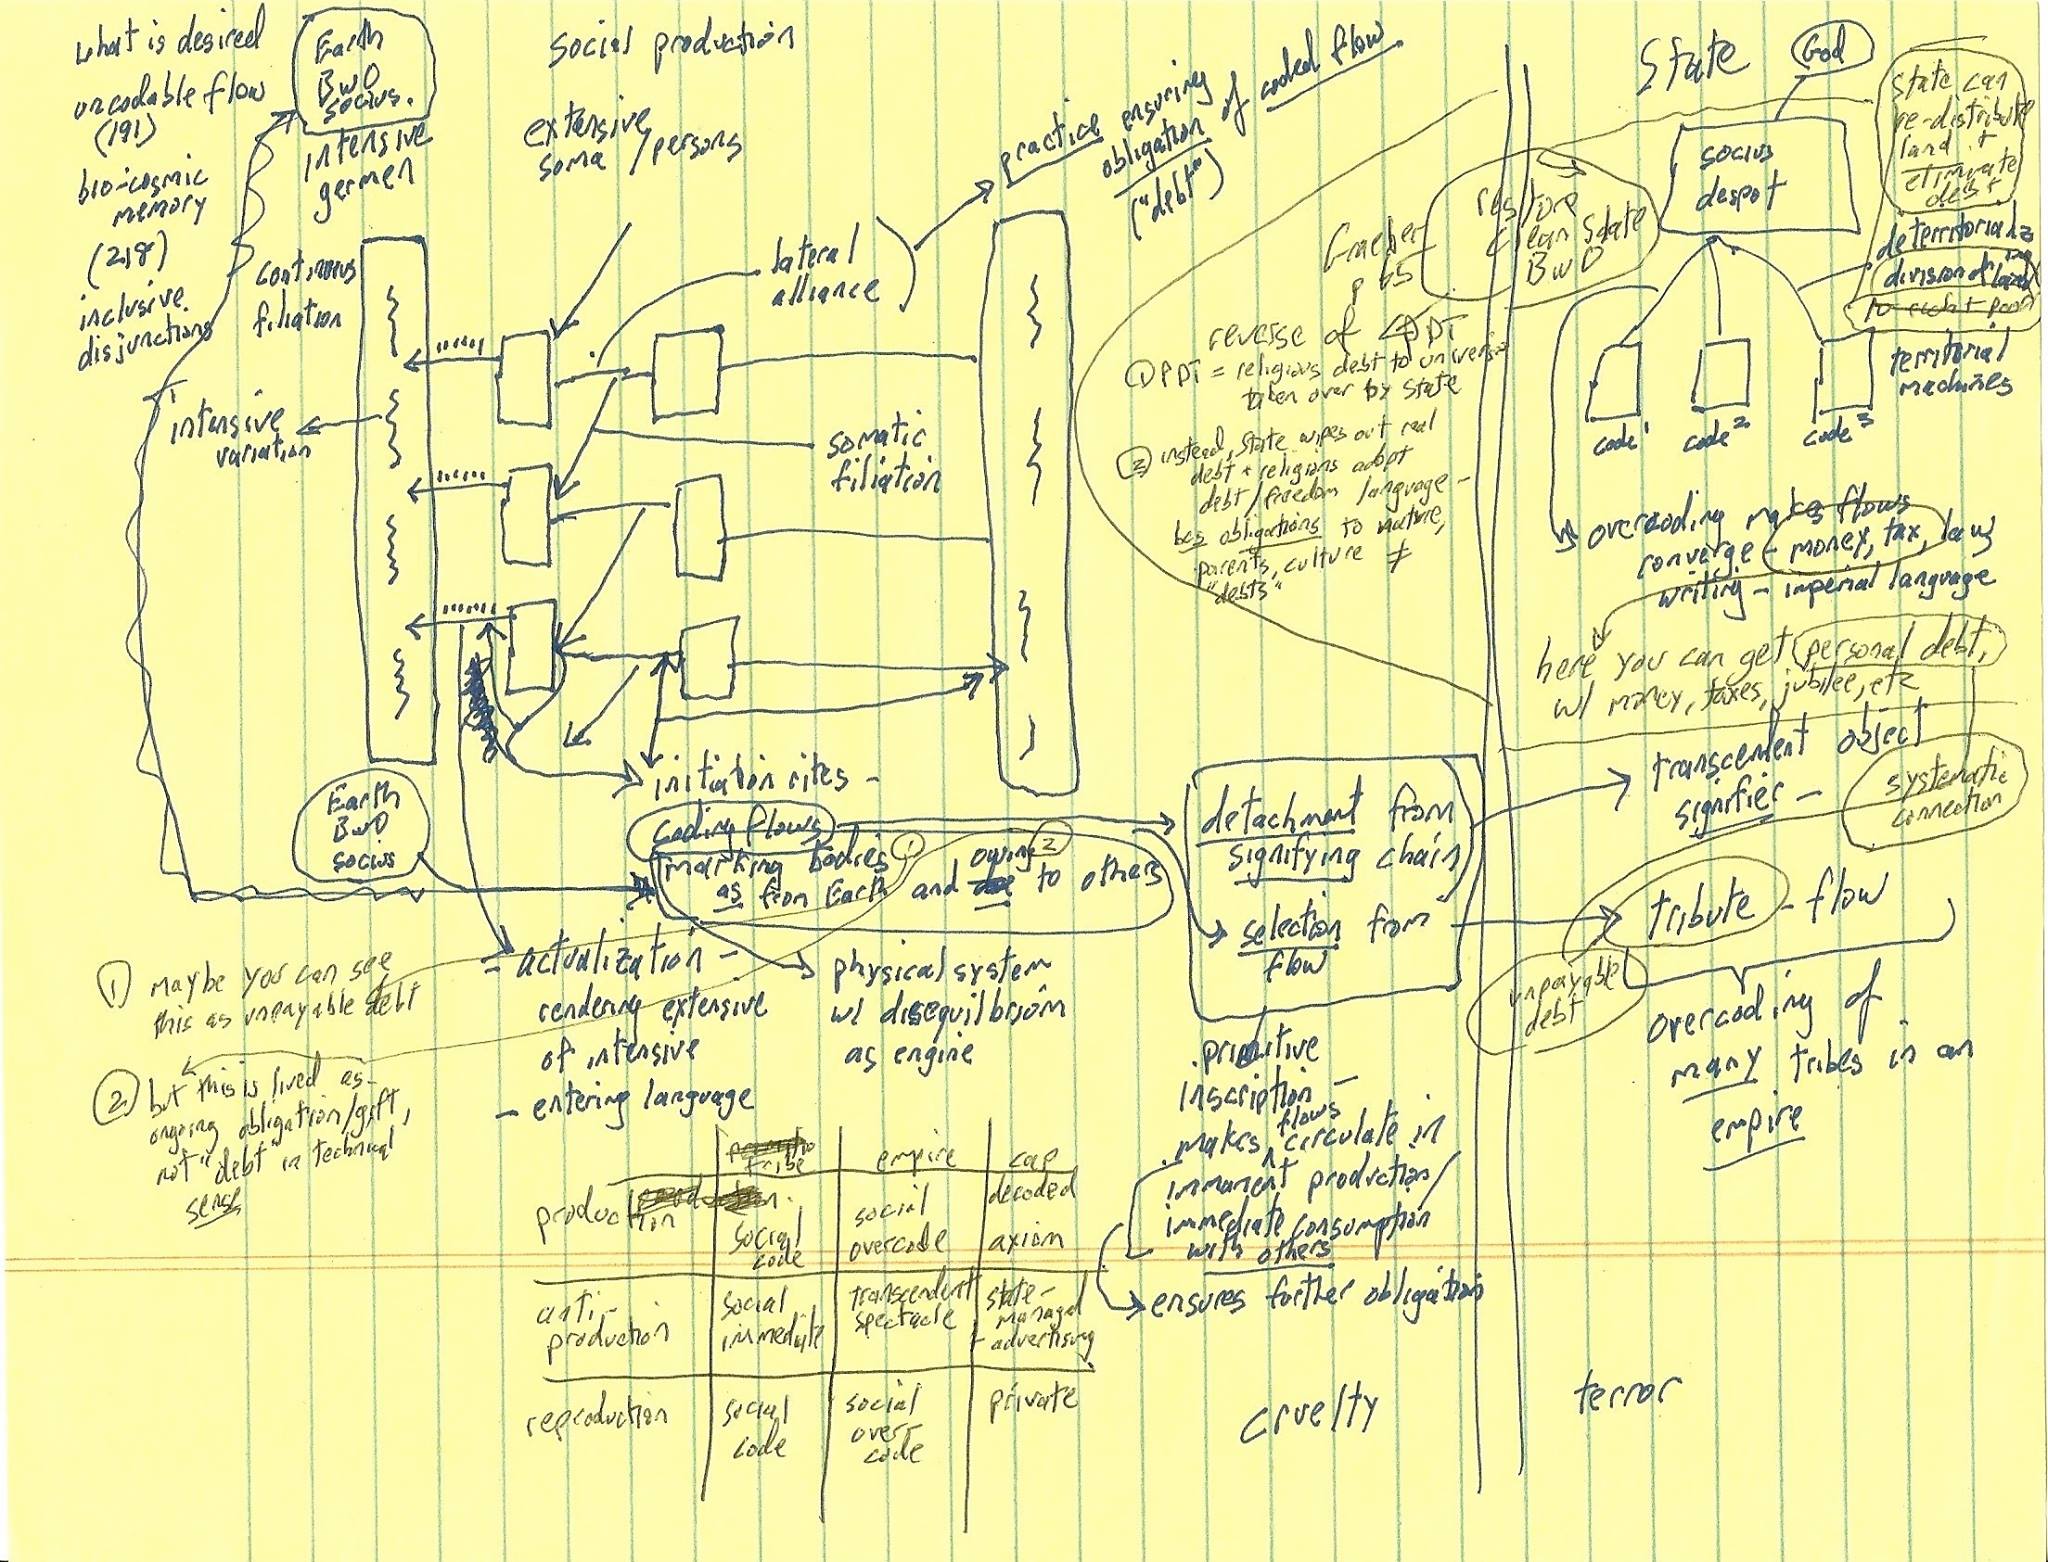 what is desired
uncodable flow
(191)
bio-cosmic
memory
(218)
inclusive
disjunctions
Earth
BwO
socius.
intensive
germen
continuous
filiation
intensive
variation
social production
extensive
soma / persons
practice ensuring
obligation of coded flow
("debt")
lateral
alliance
somatic
filiation
Graeber
p 65
restore
clean state
BwO
reverse of PDT
① PDT = religious debt to universe
taken over by state
② instead, state wipes out real
debt + religions adopt
debt/freedom language -
bes obligations to nature,
parents, culture ≠
"debts"
State
God
socius
despot
state can
re-distribute
land +
eliminate
debt
deterritorializing
division of land
territorial
machines
code¹
code²
code³
overcoding makes flows
converge - money, tax, law
writing - imperial language
here you can get personal debt,
w/ money, taxes, jubilee, etc
transcendent object
signifier -
systematic
connection
tribute - flow
unpayable
debt
overcoding of
many tribes in an
empire
Earth
BwO
socius
initiation rites -
coding flows
marking bodies ①
as from Earth and owing ② to others
detachment from
signifying chain
selection from
flow
- actualization -
rendering extensive
of intensive
- entering language
physical system
w/ disequilbrium
as engine
① maybe you can see
this as unpayable debt
② but this is lived as
ongoing obligation/gift,
not "debt" in technical
sense
primitive
inscription -
makes flows circulate in
immanent production/
immediate consumption
with others
ensures further obligation
tribe
empire
cap
production
social
code
social
overcode
decoded
axiom
anti-
production
social
immediate
transcendent
spectacle
state-
managed
+ advertising
reproduction
social
code
social
over-
code
private
cruelty
terror